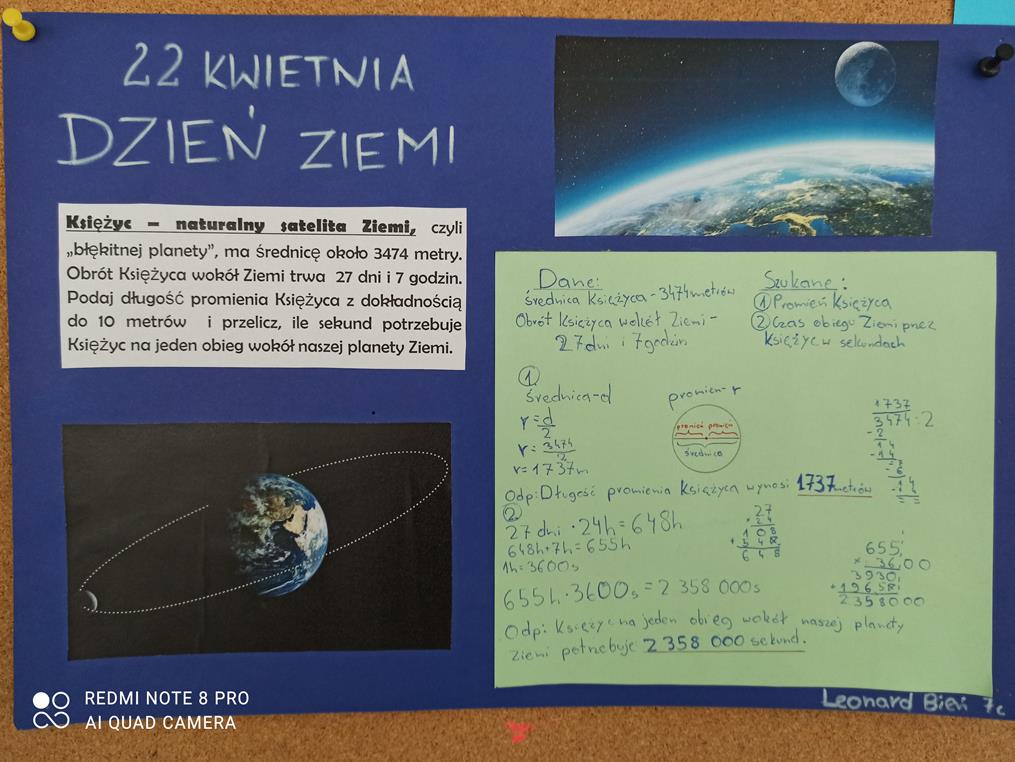 22 KWIETNIA
DZIEŃ ZIEMI
Księżyc – naturalny satelita Ziemi, czyli
„błękitnej planety”, ma średnicę około 3474 metry.
Obrót Księżyca wokół Ziemi trwa 27 dni i 7 godzin.
Podaj długość promienia Księżyca z dokładnością
do 10 metrów i przelicz, ile sekund potrzebuje
Księżyc na jeden obieg wokół naszej planety Ziemi.
Dane:
średnica Księżyca - 3474 metrów
Obrót Księżyca wokół Ziemi -
27 dni i 7 godzin
Szukane:
① Promień Księżyca
② Czas obiegu Ziemi przez
Księżyc w sekundach
①
średnica - d
r = d/2
r = 3474/2
r = 1737m
promień - r
promień promień
średnica
1737
3474:2
-2
14
-14
Odp: Długość promienia Księżyca wynosi 1737 metrów
②
27 dni · 24h = 648h
648h + 7h = 655h
1h = 3600s
655h · 3600s = 2 358 000s
27
108
648
655
× 3600
3930
+ 1965
2358000
Odp: Księżyc na jeden obieg wokół naszej planety
Ziemi potrzebuje 2 358 000 sekund.
Leonard Bień 7c
REDMI NOTE 8 PRO
AI QUAD CAMERA